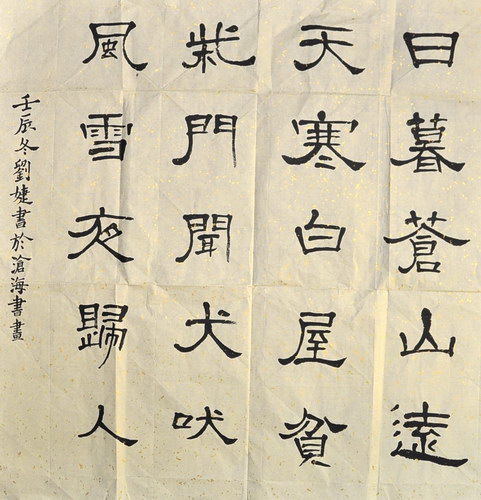 日暮蒼山遠
天寒白屋貧
柴門聞犬吠
風雪夜歸人
壬辰冬劉婕書於滄海書畫